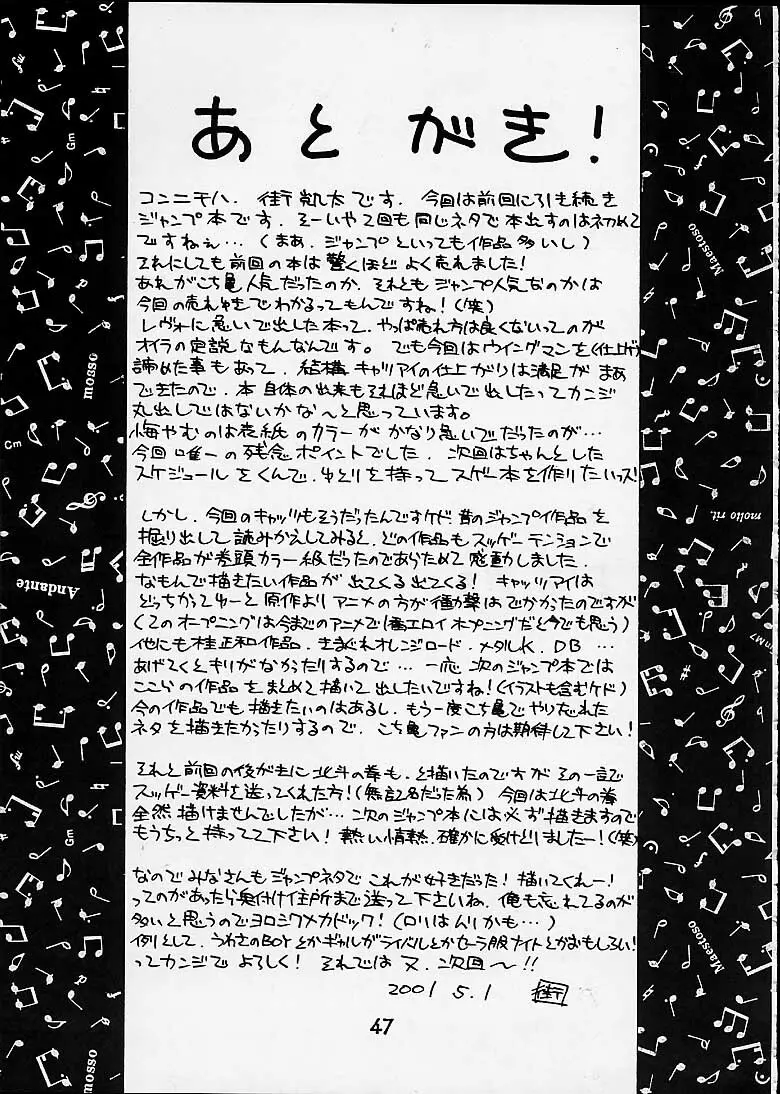 あとがき!
コンニチハ．街凱太です．今回は前回に引き続き
ジャンプ本です．そーいや2回も同じネタで本出すのは初めて
ですねぇ…(まあ．ジャンプといっても作品多いし)
それにしても前回の本は驚くほどよく売れました!
あれがこち亀人気だったのか．それともジャンプ人気なのかは
今回の売れゆきでわかるってもんですね!(笑)
レヴォに急いで出した本って．やっぱ売れ方は良くないってのが
オイラの定説なもんなんです。でも今回はウイングマンを(仕上げ)
諦めた事もあって．結構キャッツアイの仕上がりは満足がまあ
できたので．本自体の出来もそれほど急いで出したってカンジ
丸出しではないかな〜と思っています。
悔やむのは表紙のカラーがかなり急いでだったのが…
今回唯一の残念ポイントでした．次回はちゃんとした
スケジュールをくんで．ゆとりを持ってスゲー本を作りたいっス!
しかし．今回のキャッツもそうだったんですケド昔のジャンプ作品を
掘り出して読みかえしてみると．どの作品もスッゲーテンションで
全作品が巻頭カラー級だったのであらためて感動しました．
なもんで描きたい作品が出てくる出てくる! キャッツアイは
どっちかってゆーと原作よりアニメの方が衝撃はでかかたのですが
(2のオープニングは今までのアニメで1番エロイオープニングだと今でも思う)
他にも桂正和作品．きまぐれオレンジロード．メタルK．DB…
あげてくとキリがなかったりするので…一応次のジャンプ本では
ここらの作品をまとめて描いて出したいですね!(イラストも含むケド)
今の作品でも描きたいのはあるし．もう一度こち亀でやり忘れた
ネタを描きたかったりするので．こち亀ファンの方は期待して下さい!
それと前回の後がきに北斗の拳も．と描いたのですがその一言で
スッゲー資料を送ってくれた方!(無記名だった為)今回は北斗の拳
全然描けませんでしたが…次のジャンプ本には必ず描きますので
もうちっと待ってて下さい! 熱い情熱．確かに受けとりましたー!(笑)
なのでみなさんもジャンプネタでこれが好きだった!描いてくれー!
ってのがあったら奥付け住所まで送って下さいね．俺も忘れてるのが
多いと思うのでヨロシクメカドック!(ロリはムリかも…)
例として．うわさのBOYとかギャルがライバルとかセーラ服ナイトとかおもしろい!
ってカンジでよろしく! それでは又．次回〜!!
2001 5.1 街
47
mosso
Gm
Andante
Maestoso
molto rit.
Gm
mosso
Gm
Maestoso